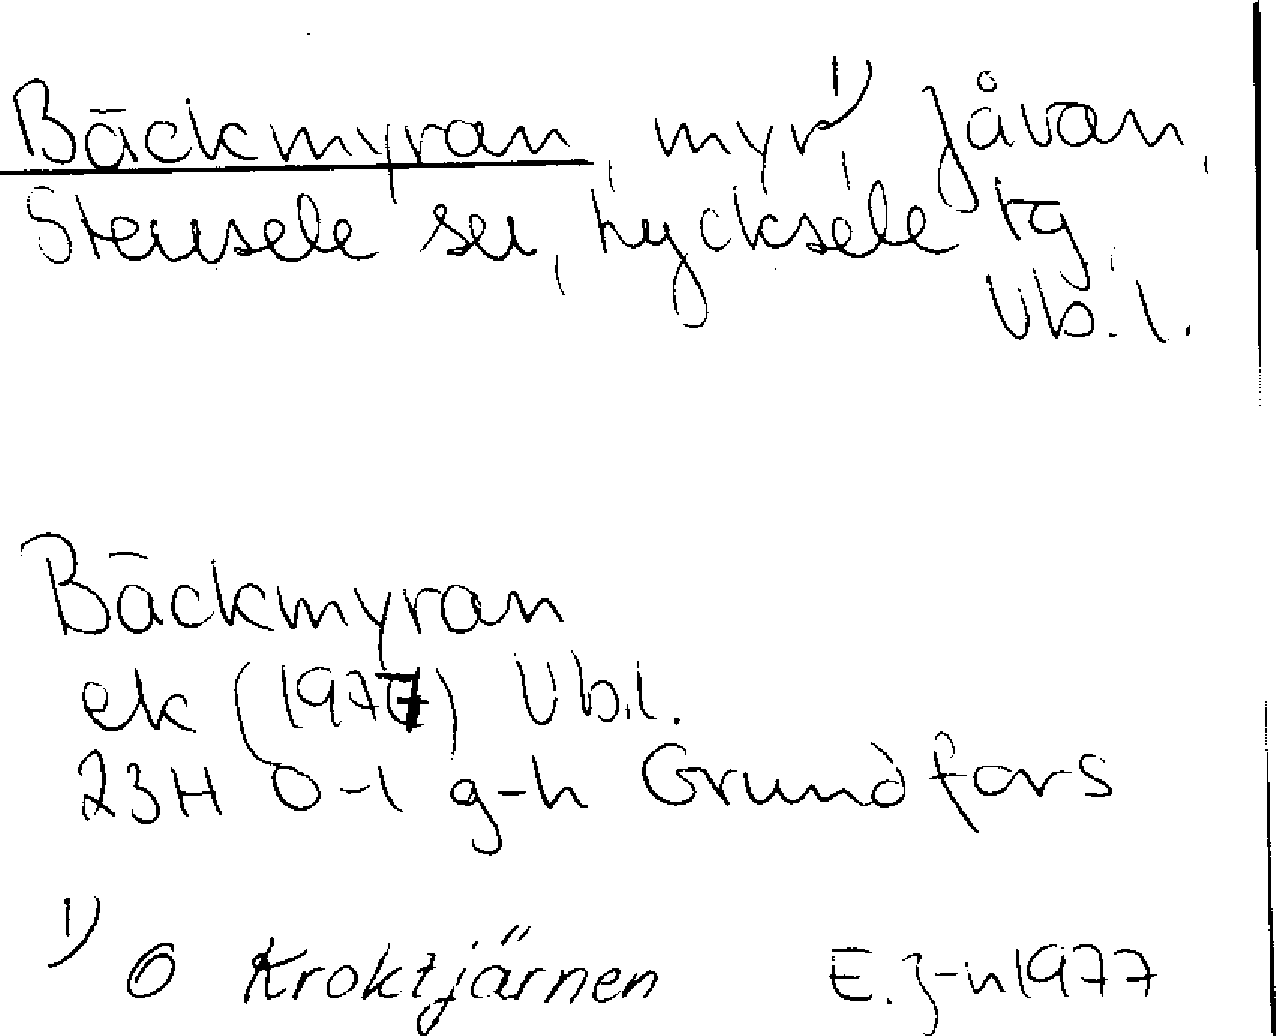 Bäckmyran, myr¹⁾, Jåvan,
Stensele sn, Lycksele tg
Vb.l.
Bäckmyran
ek (1977) Vb.l.
23H 0-1 g-h Grundfors
¹⁾ O Kroktjärnen E.J-n 1977